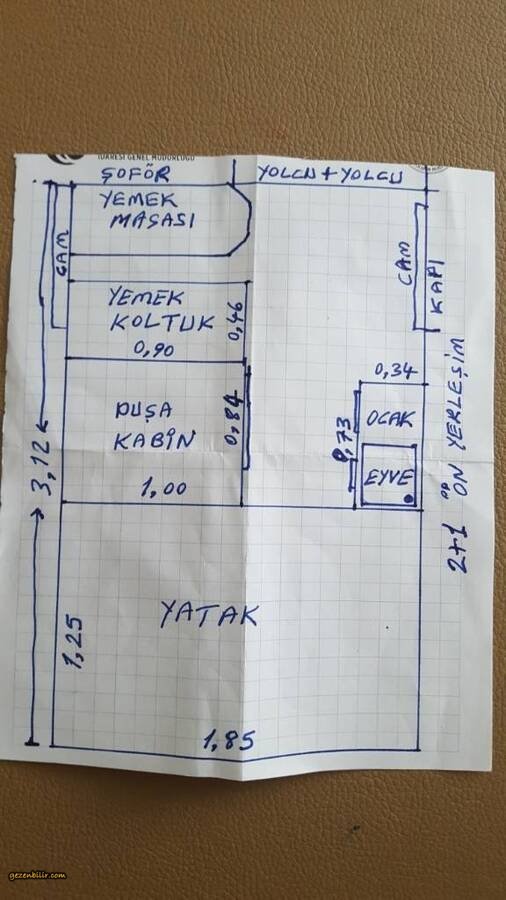 İDARESİ GENEL MÜDÜRLÜĞÜ
ŞOFÖR
YOLCU + YOLCU
YEMEK
MASASI
CAM
CAM
KAPI
YEMEK
KOLTUK
0,46
0,90
0,34
DUŞA
KABİN
0,84
1,00
0,73
OCAK
EYVE
3,12
2+1 ÖN YERLEŞİM
YATAK
1,25
1,85
gezenbilir.com